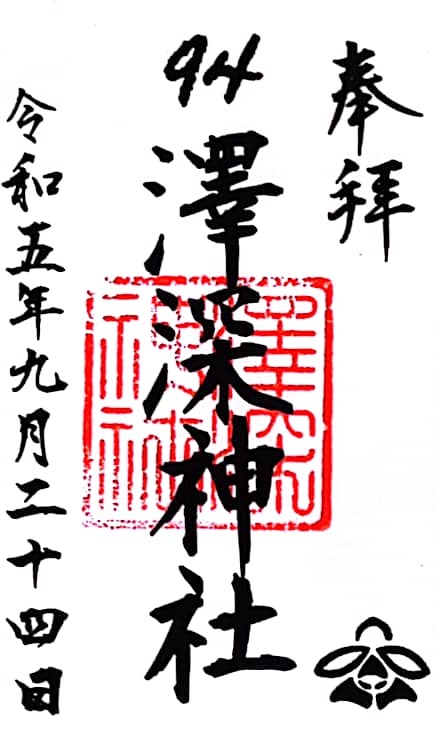 奉拝
94
澤深神社
令和五年九月二十四日